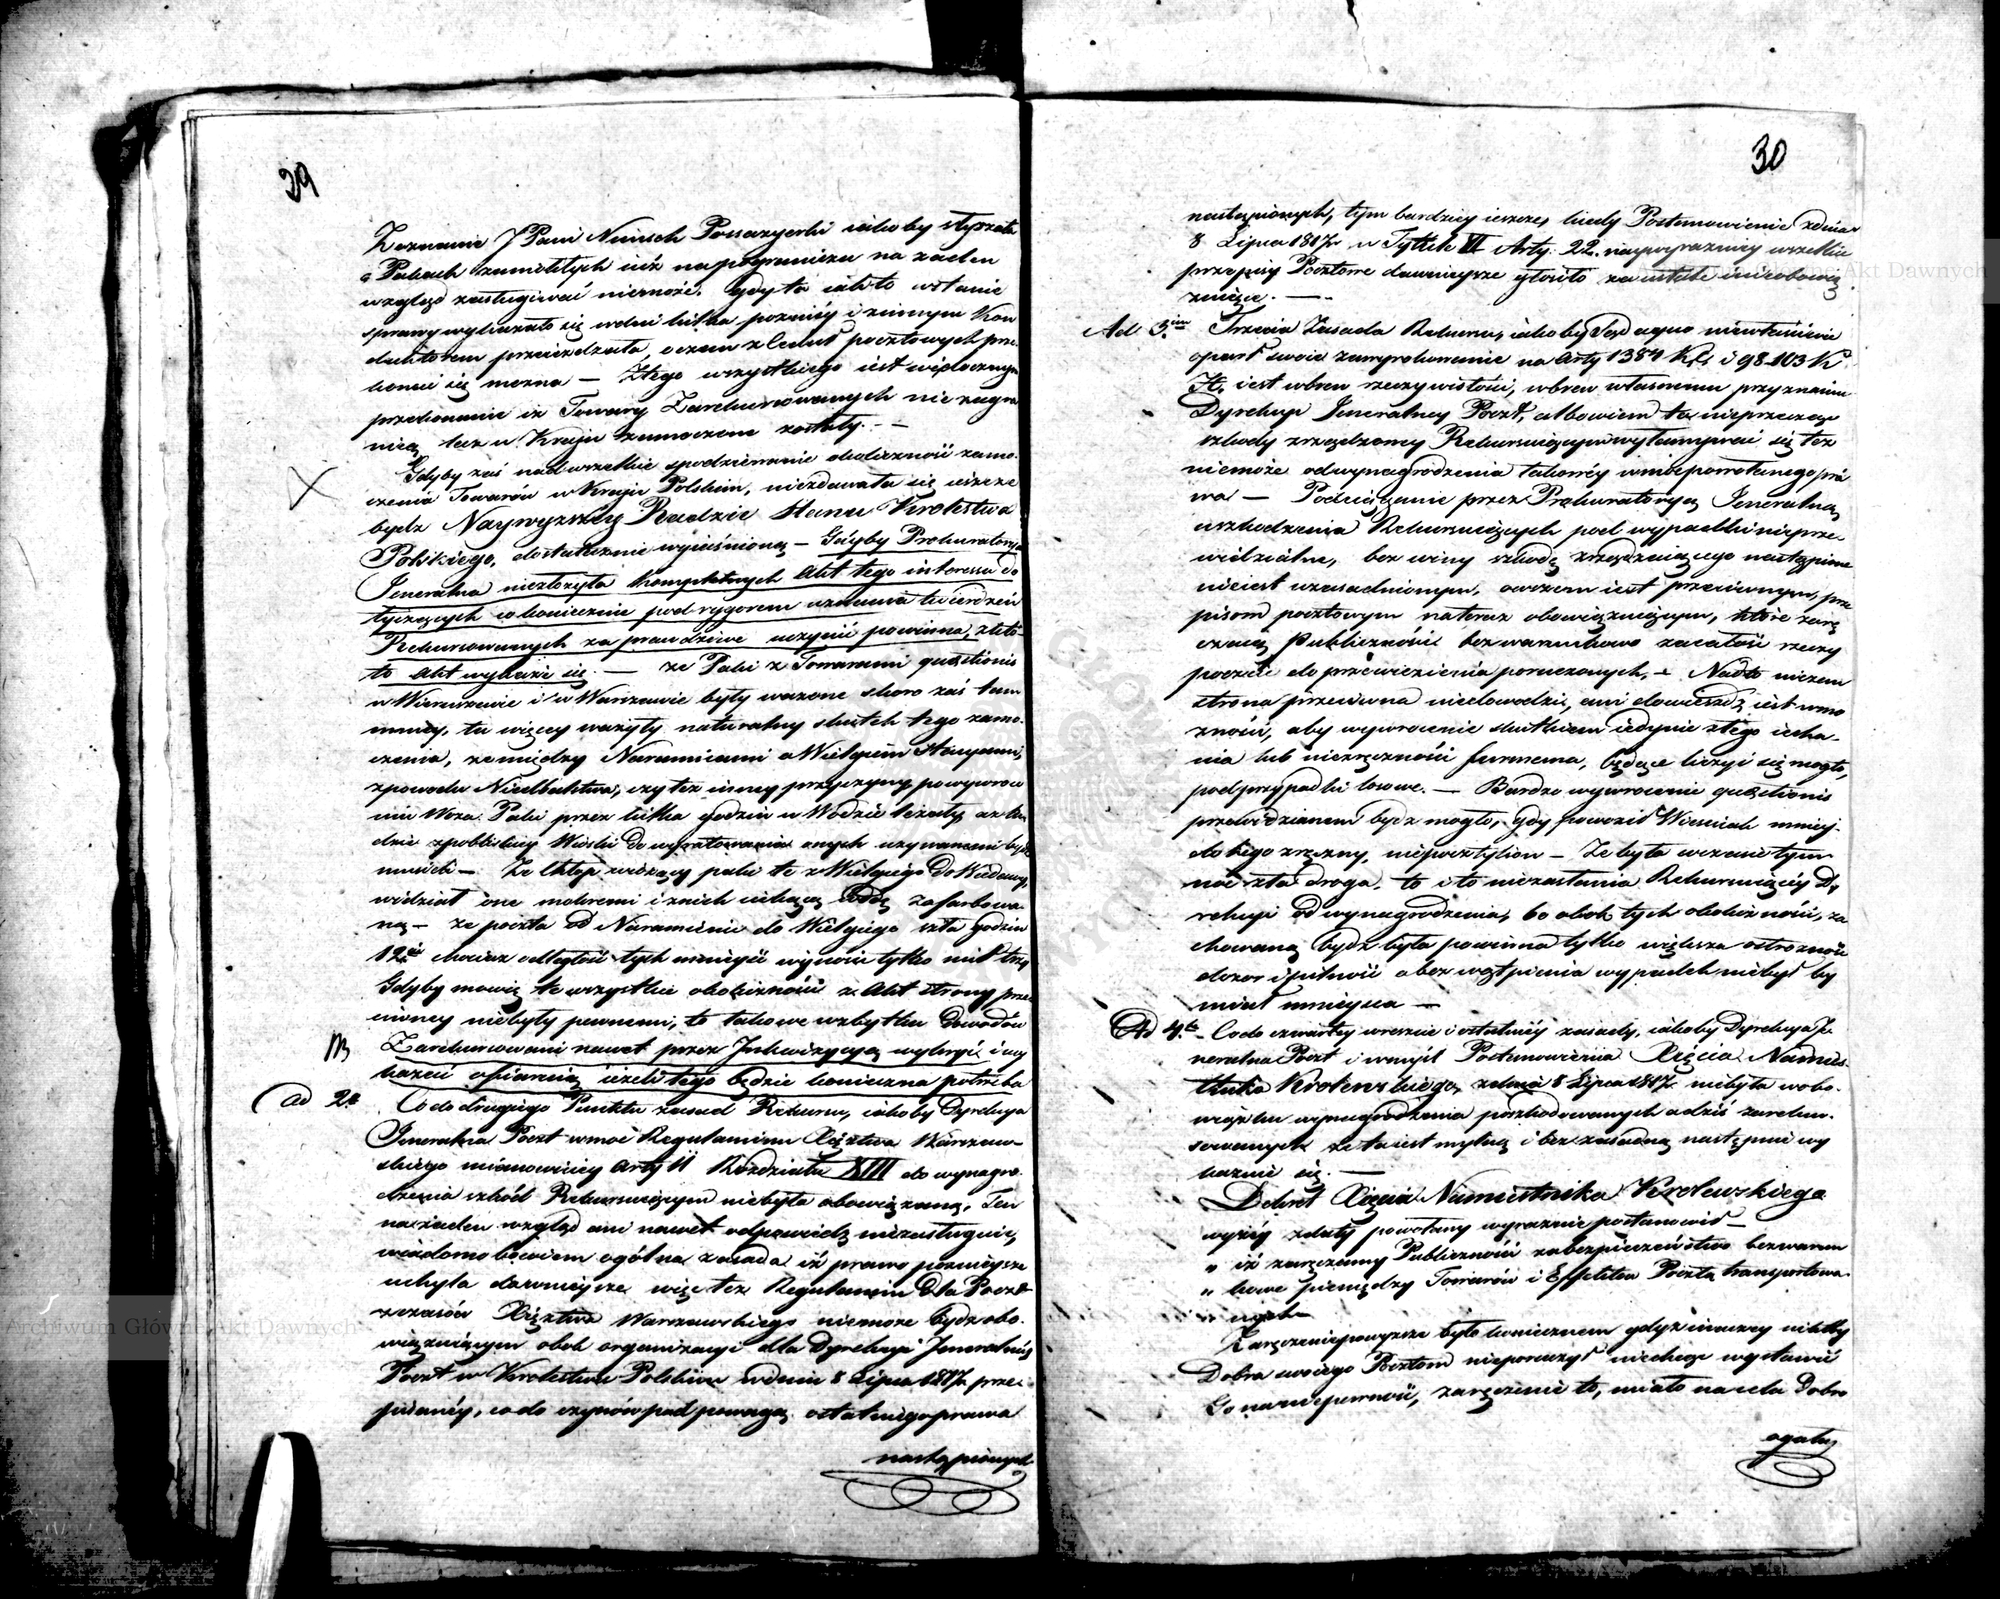 29
Zeznanie JPani Nimsch Poczayerki iakoby słyszała
o Pakach zamokłych iuż na pograniczu na żaden
wzgląd zasługiwać niemoże. Gdyż ta iak to w stanie
sprawy wykazało się w dni kilka pozniéy i z innym Kon
duktorem przeieżdżała, o czem z Ceduł pocztowych prze-
konać się można — Z tego wszystkiego iest widocznym
przekonanie iż Towary Zarekursowanych nie zagra
nicą lecz w Kraju zamoczone zostały. —
Gdyby zaś nad wszelkie spodziewanie okoliczność zamo-
czenia Towarów w Kraju Polskim, niezdawała się ieszcze
bydź Naywyższey Radzie Stanu Królestwa
Polskiego, dostatecznie wyiaśnioną — Gdyby Prokuratorya
Jeneralna niezłożyła kompletnych Akt tego interessu do
tyczących co koniecznie pod rygorem uznania twierdzeń
Rekursowanych za prawdziwe uczynić powinna, z któ-
to Akt wykaże się. — że Paki z Towarami quaestionis
w Wieruszowie i w Warszawie były ważone skoro zaś tam
mniey, tu więcey ważyły naturalny skutek tego zamo-
czenia, że między Naramicami a Wielgiem Stacyami,
z powodu Niedbalstwa, czy też inney przyczyny po wywróce
niu Woza Paki przez kilka godzin w Wodzie leżały, aż lu
dzie z pobliskiey Wioski do wyratowania onych używanemi bydź
musieli — Że chłop wiozący paki te z Wielgiego do Widawy,
widział one mokremi i z nich cieknącą Wodę zafarbowa-
ną — że poczta od Naramienic do Wielgiego szła godzin
12cie chociaż odległość tych mieysc wynosi tylko mil trzy
Gdyby mówię te wszystkie okoliczności z Akt strony prze
ciwney niebyły pewnemi, to takowe w zbytku Dowodów
NB Zarekursowani nawet przez Inkwizycyą wyłoyić i wy
kazać ofiaruią ieżeli tego będzie konieczna potrzeba
ad 2e Co do drugiego Punktu zasad Rekursu, iakoby Dyrekcya
Jeneralna Poczt w moc Regulaminu Xięztwa Warszaw-
skiego mianowiciey Arty II Rozdziału XIII do wynagro-
dzenia szkód Rekursuiącym niebyła obowiązaną. Ten
na żaden wzgląd ani nawet odpowiedź niezasługuie,
wiadoma bowiem ogólna zasada iż prawo poznieysze
uchyla dawnieysze więc też Regulamin dla Poczt
z czasów Xięztwa Warszawskiego niemoże bydź obo-
wiązuiącym obok organizacyi dla Dyrekcyi Jeneralnéy
Poczt w Królestwie Polskim w dniu 8 Lipca 1817r. prze-
pisanéy, co do czynów pod powagą ostatniego prawa
nastąpionych
30
nastąpionych, tym bardziey ieszcze, kiedy Postanowienie z dnia
8 Lipca 1817r. w Tytule VI Arty. 22. naywyraźniey wszelkie
przepisy Pocztowe dawnieysze głosiło za ustałe i nieobowią
zuiące. —
Ad 3cim Trzecia Zasada Rekursu, iakoby Sąd a quo niewłaściwie
oparł swoie zawyrokowanie na Arty 1384 K.C. i 98.103 K.
H. iest wbrew rzeczywistości, wbrew własnemu przyznaniu
Dyrekcyi Jeneralney Poczt, albowiem ta nieprzecząc
szkody zrządzoney Rekursuiącym wyłamywać się też
niemoże od wynagrodzenia takowéy w moc powołanego pra
wa — Podciąganie przez Prokuratoryą Jeneralną
uszkodzenia Rekursuiących pod wypadki nieprze-
widzialne, bez winy szkodę zrządzaiącego nastąpione
nieiest uzasadnionym, owszem iest przeciwnym, prze
pisom pocztowym na teraz obowiązuiącym, które zarę
czaią Publiczności bezwarunkowo za całość rzeczy
poczcie do przewiezienia poruczonych. — Nadto niczem
strona przeciwna niedowodzi, ani dowieść iest w mo
żności, aby wywrócenie skutkiem iedynie złego iecha-
nia lub niezręczności furmana, będące liczyć się mogło,
pod przypadki losowe. — Bardzo wywrócenie quaestionis
przewidzianem bydź mogło, gdy powoził Wieśniak mniey
do tego zręczny, niepocztylion — Że była w czasie tym
noc zła droga, to i to niezasłania Rekursuiącéy Dy
rekcyi od wynagrodzenia, bo obok tych okoliczności, za
chowaną bydź była powinna tylko większa ostrożność
dozor i pilność a bez wątpienia wypadek niebył by
miał mieysca —
Ad 4te — Co do czwartey wreszcie i ostatniéy zasady, iakoby Dyrekcya Je
neralna Poczt i w myśl Postanowienia Xięcia Namiest-
nika Królewskiego, z dnia 8 Lipca 1817. niebyła w obo-
wiązku wynagrodzenia poszkodowanych a dziś zarekur-
sowanych że ta iest mylną i bezzasadną następnie wy
każe się. —
Dekret Xięcia Namiestnika Królewskiego
wyżéy z daty powołany wyraznie postanowił —
„ iż zaręczamy Publiczności zabezpieczeństwo bezwarun
„ kowe pieniędzy Towarów i Effektów Pocztą transportowa-
„ nych —
Zaręczenie powyższe było koniecznem gdyż inaczey nikt by
Dobra swoiego Pocztom nieporuczył niechcąc wystawić
Go na niepewność, zaręczenie to, miało na celu Dobro
ogółu
Archiwum Główne Akt Dawnych